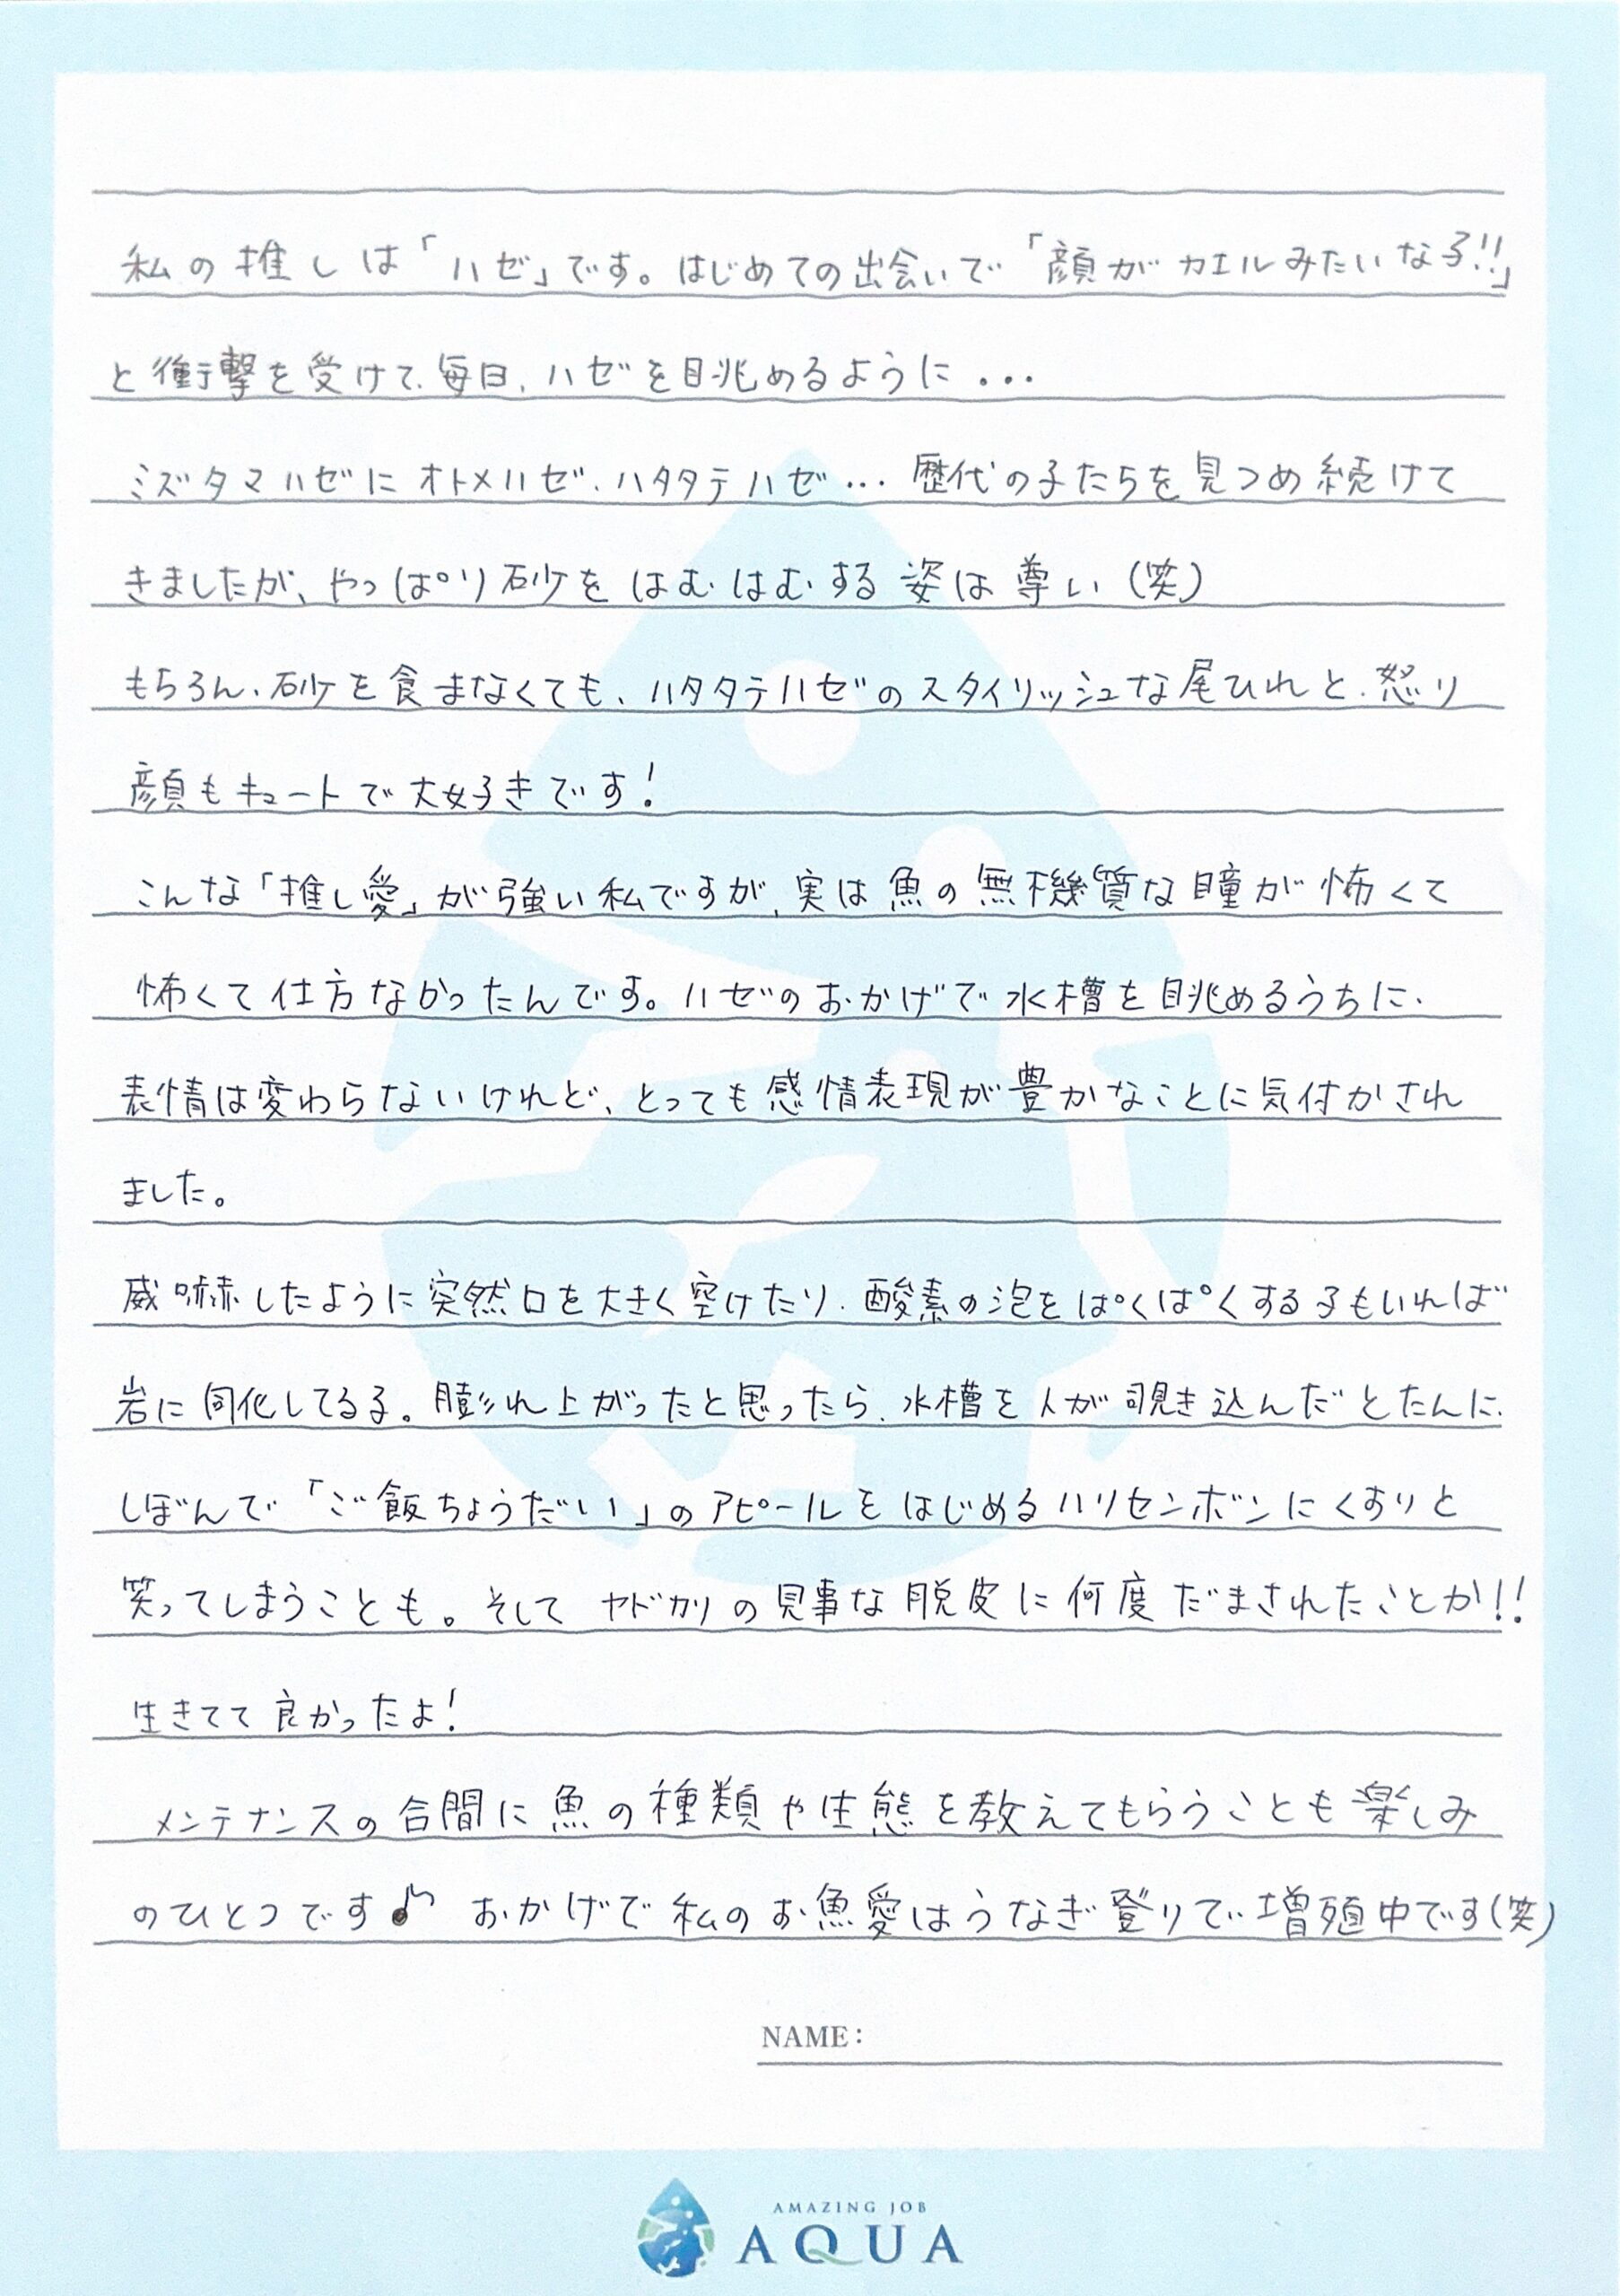 私の推しは「ハゼ」です。はじめての出会いで「顔がカエルみたいな子!!」
と衝撃を受けて、毎日、ハゼを眺めるように...
ミズタマハゼにオトメハゼ、ハタタテハゼ...歴代の子たちを見つめ続けて
きましたが、やっぱり砂をはむはむする姿は尊い(笑)
もちろん、砂を食まなくても、ハタタテハゼのスタイリッシュな尾ひれと、怒り
顔もキュートで大好きです!
こんな「推し愛」が強い私ですが、実は魚の無機質な瞳が怖くて
怖くて仕方なかったんです。ハゼのおかげで水槽を眺めるうちに、
表情は変わらないけれど、とっても感情表現が豊かなことに気付かされ
ました。
威嚇したように突然口を大きく空けたり、酸素の泡をぱくぱくする子もいれば
岩に同化してる子。膨れ上がったと思ったら、水槽を人が覗き込んだとたんに、
しぼんで「ご飯ちょうだい」のアピールをはじめるハリセンボンにくすりと
笑ってしまうことも。そしてヤドカリの見事な脱皮に何度だまされたことか!!
生きてて良かったよ!
メンテナンスの合間に魚の種類や生態を教えてもらうことも楽しみ
のひとつです♪ おかげで私のお魚愛はうなぎ登りで増殖中です(笑)
NAME:
AMAZING JOB
AQUA